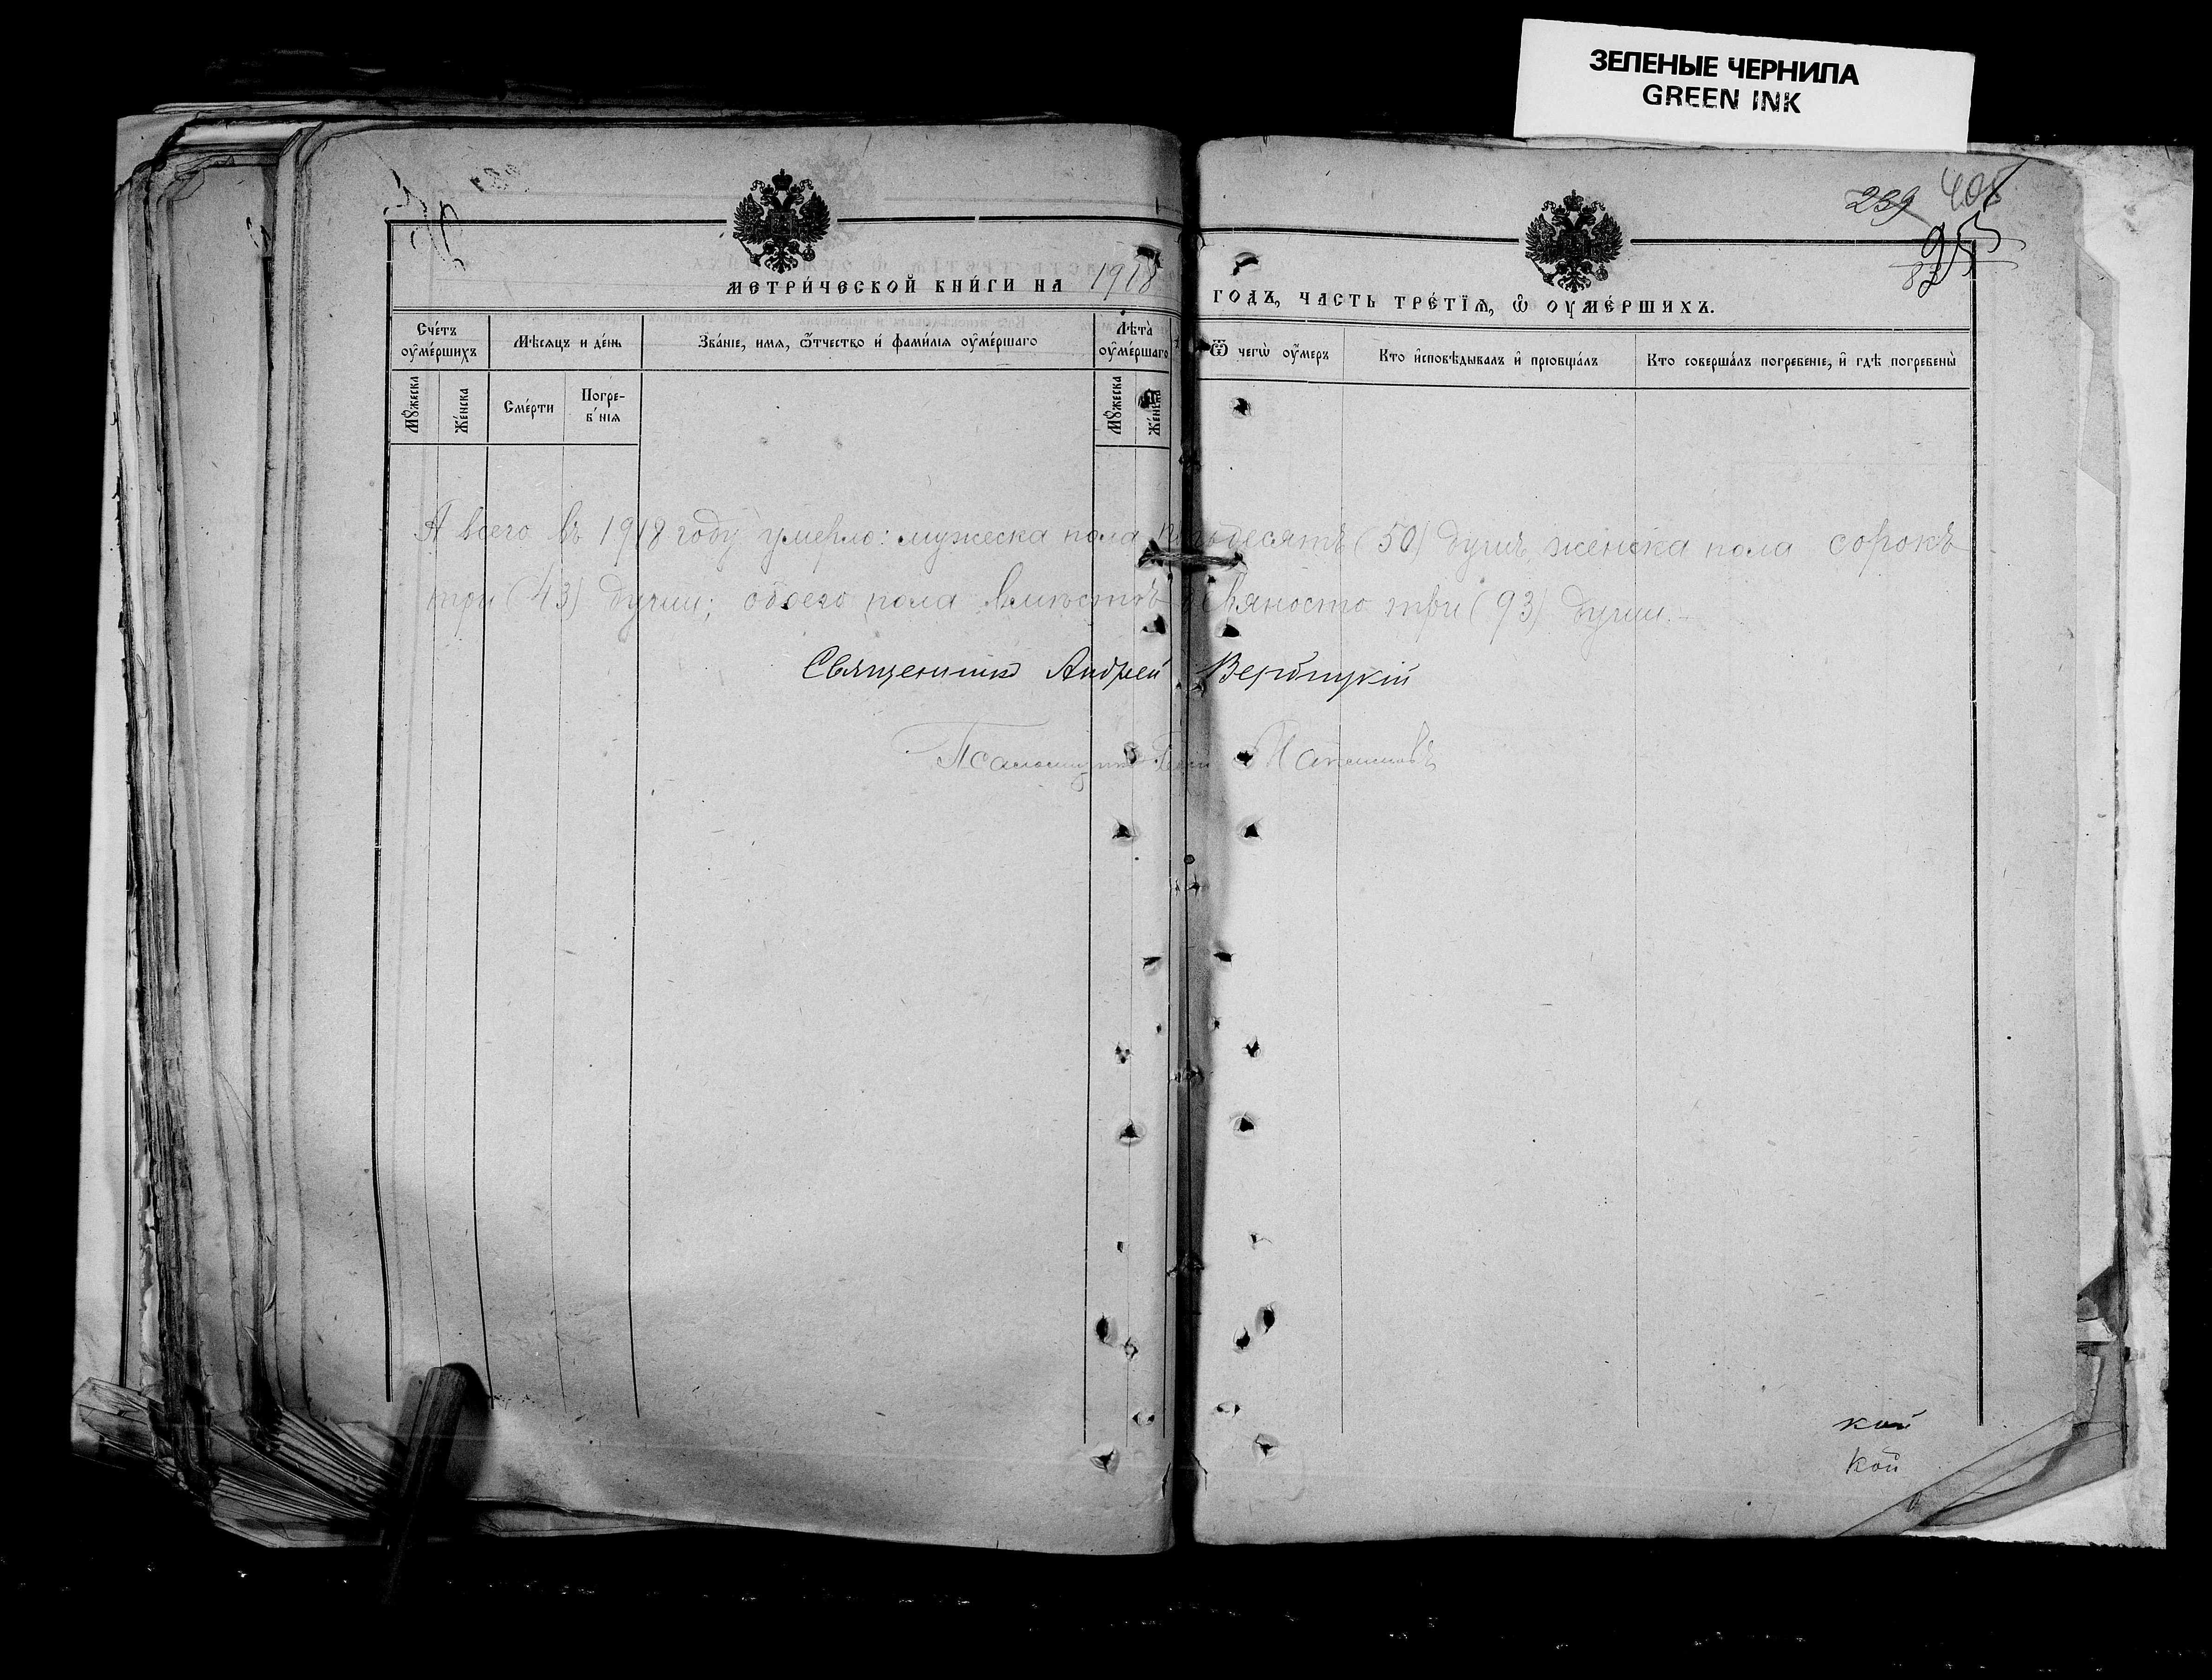 ЗЕЛЕНЫЕ ЧЕРНИЛА
GREEN INK
239 408
95
83
МЕТРИ́ЧЕСКОЙ КНИ́ГИ НА 1918 ГОДЪ, ЧАСТЬ ТРЕ́ТЇѦ, Ѡ҆ ОУ҆МЕ́РШИХЪ.
Сче́тъ оу҆ме́ршихъ
Мѣсѧцъ и де́нь
Зва́нїе, имѧ, ѿтчество и҆ фами́лїѧ оу҆ме́ршаго
Лѣта̀ оу҆ме́ршаго
Ѿ чегѡ̀ оу҆меръ
Кто и҆сповѣдывалъ и҆ прїобща́лъ
Кто соверша́лъ погребенїе, и҆ гдѣ погребены̀
Мꙋжеска
Же́нска
Сме́рти
Погре-б'нїѧ
Мꙋжеска
Же́нска
А всего въ 1918 году умерло: мужеска пола пятьдесятъ (50) душъ, женска пола сорокъ
три (43) души; обоего пола вмѣстѣ девяносто три (93) души.
Священникъ Андрей Вербицкій
Псаломщикъ Максимовъ
кой
кой